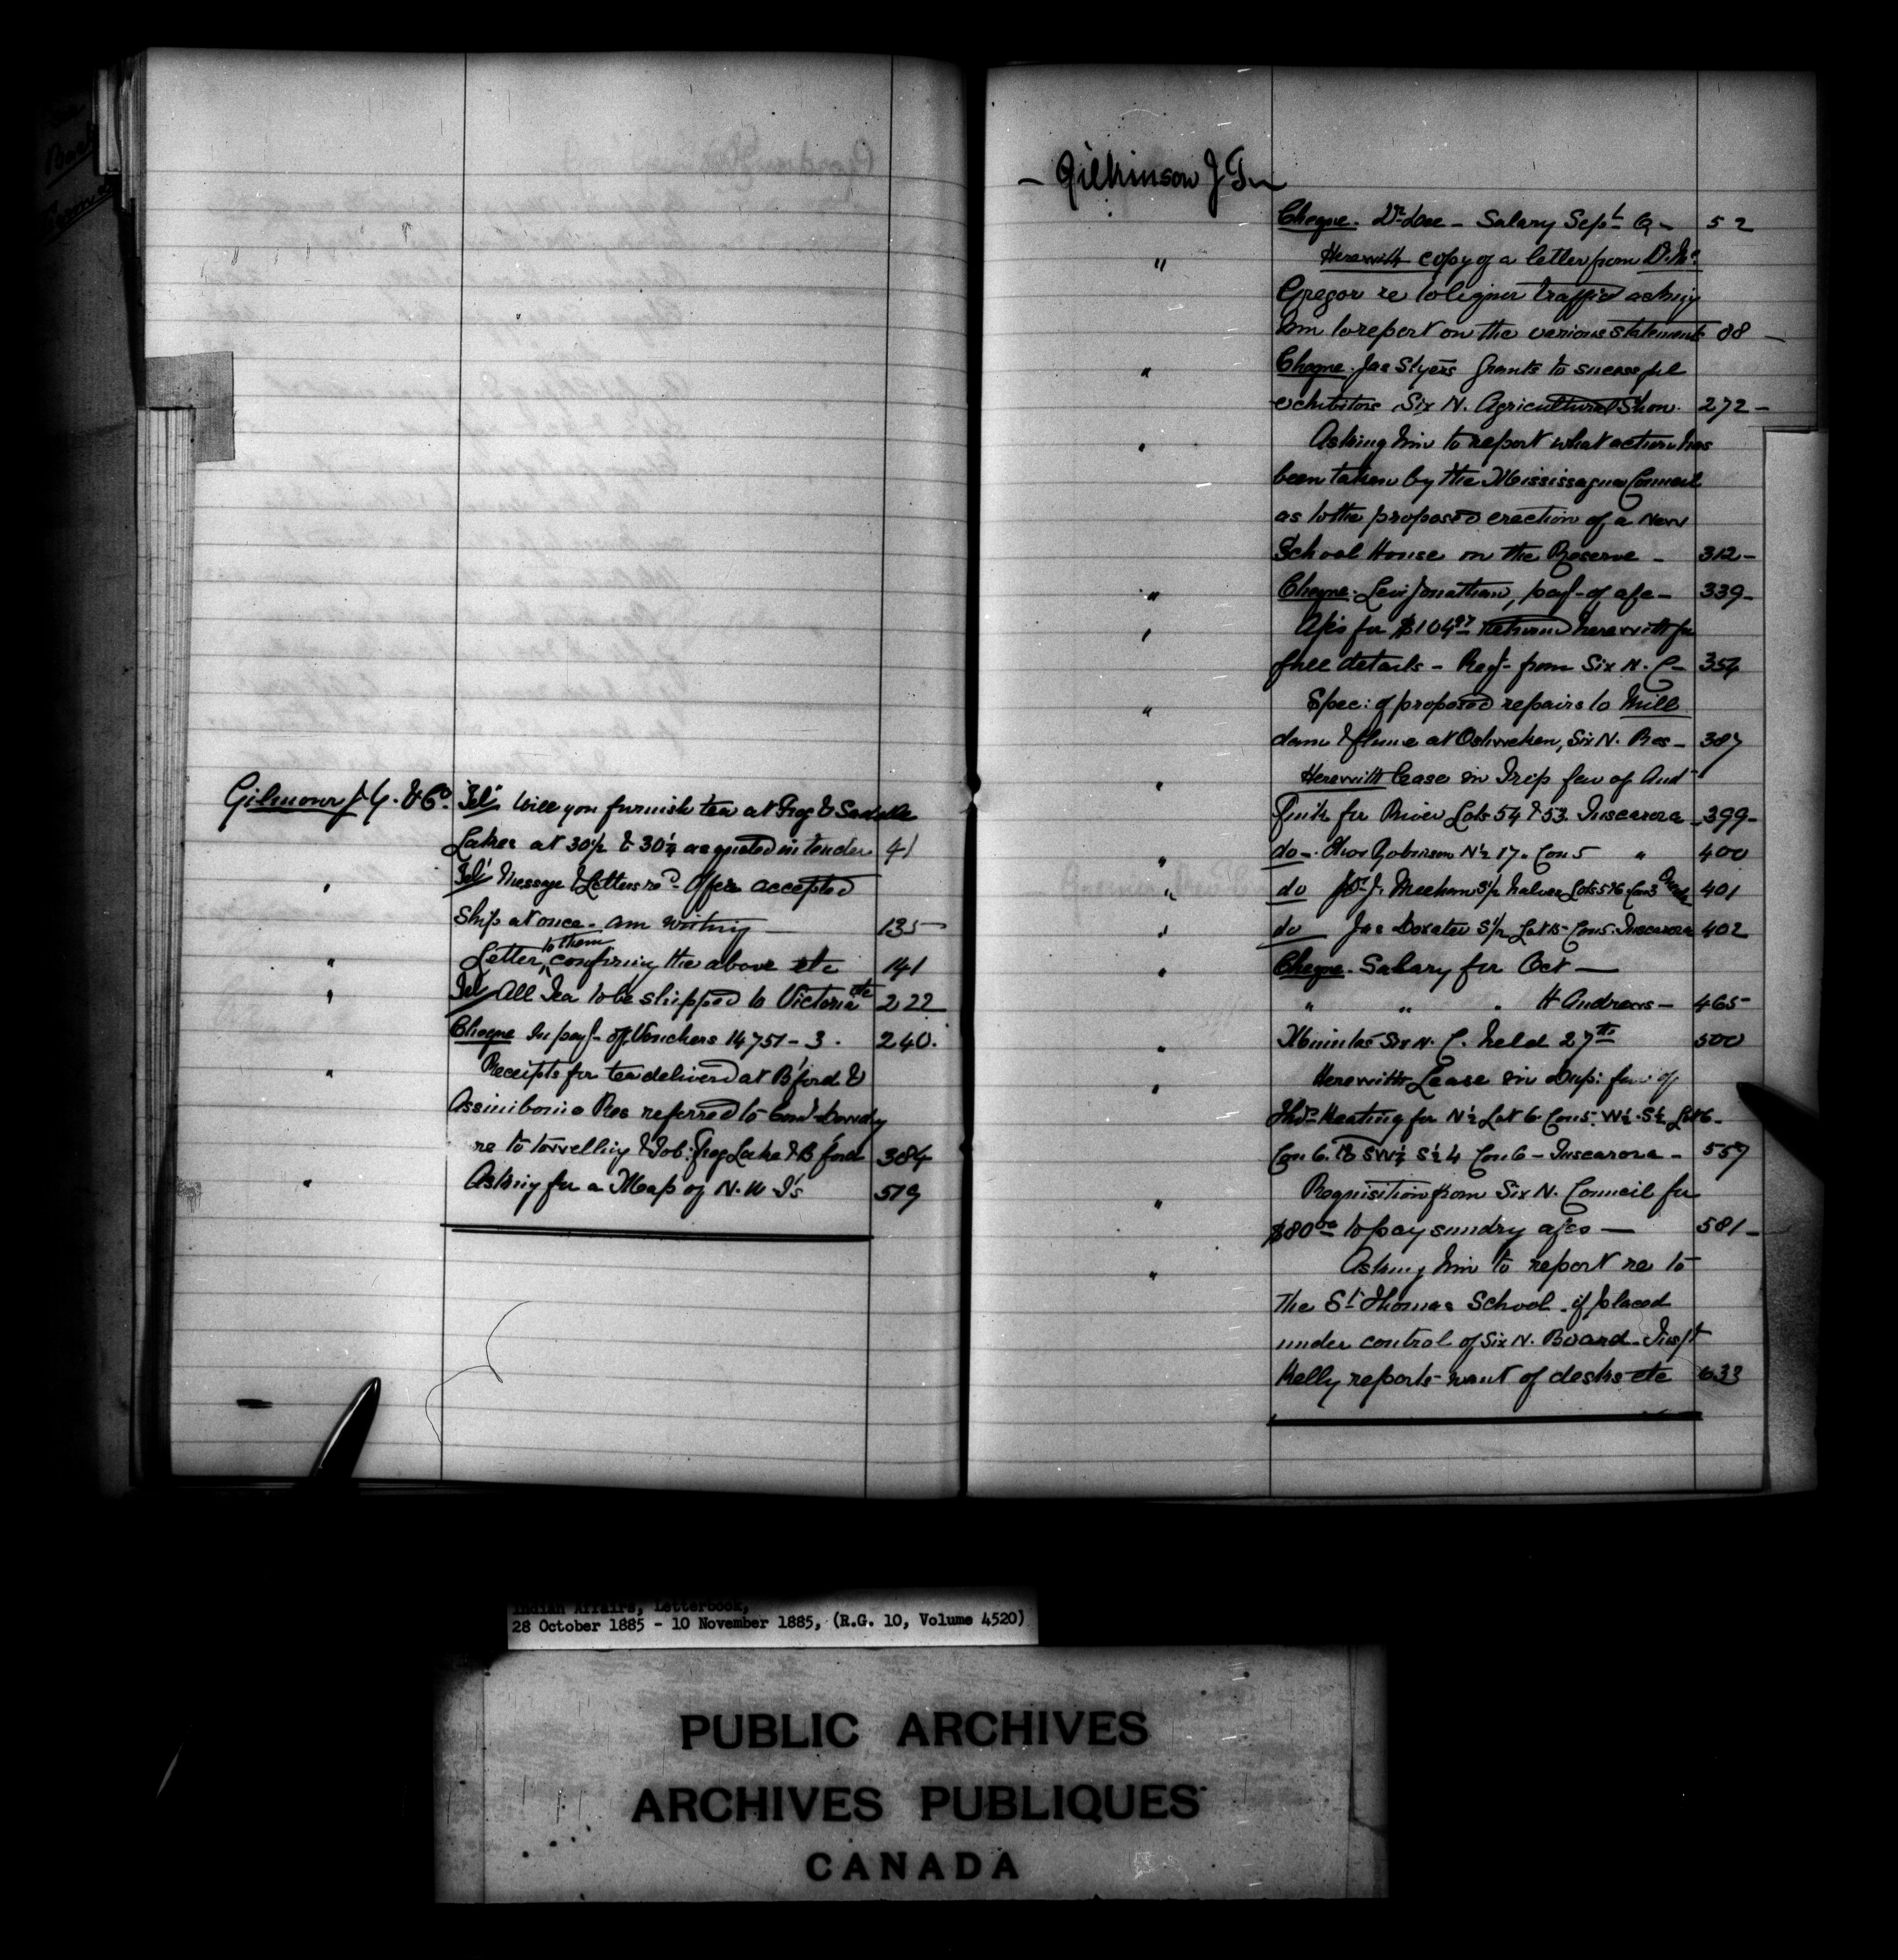 Gilmour J. Y. & Co. Tel. Will you furnish tea at Frog & Saddle
Lakes at 30½ & 30¼ as quoted in tender 41
" Tel. Message & Letters recd. Offer accepted
Ship at once. am writing 135
" Letter to them confirming the above etc 141
" Tel. All Tea to be shipped to Victoria etc 222
Cheque In payt. of Vouchers 14751-3. 240.
" Receipts for tea delivered at B'ford &
Assiniboine Res referred to Comr. Dewdney
re to Frog Lake & B'ford 384
" Asking for a Map of N. W T's 519
- Gilkinson J T -
Cheque. Dr. Dee - Salary Sept Q - 52
" Herewith copy of a letter from D. Mc
Gregor re to liquor traffic asking
him to report on the various statements 88 -
" Cheque. Jas Styers Grants to successful
exhibitors Six N. Agricultural Show. 272 -
" Asking him to report what action has
been taken by the Mississagua Council
as to the proposed erection of a New
School House on the Reserve - 312 -
" Cheque. Levi Jonathan, payt. of a/c - 339 -
" A/cs for $104.97 returned herewith for
full details - Reqt. from Six N. C - 354
" Spec: of proposed repairs to Mill
dam & flume at Oshweken, Six N. Res - 387
" Herewith lease in Trip fav of And
for River Lots 54 & 53. Tuscarora - 399 -
" do - Thos Robinson N½ 17. Con 5 " 400
" do J. Meehan S½ halves Lots 5 & 6 Con 3 401
" do Jas Doxater S½ Lot Con 5. Tuscarora 402
" Cheque. Salary for Oct -
" " " H Andrews - 465
" Minutes Six N. C. held 27th 500
" Herewith Lease in Dup: fav of
Thos Keating for N½ Lot 6 Con 5. W½ - S½ Lot 6 -
Con 6. & SW¼ S½ 4 Con 6 - Tuscarora - 557
" Requisition from Six N. Council for
$80.00 to pay sundry a/cs - 581 -
" Asking him to report re to
the St Thomas School. if placed
under control of Six N. Board. Inspt
Kelly reports want of desks etc 633
28 October 1885 - 10 November 1885, (R.G. 10, Volume 4520)
PUBLIC ARCHIVES
ARCHIVES PUBLIQUES
CANADA